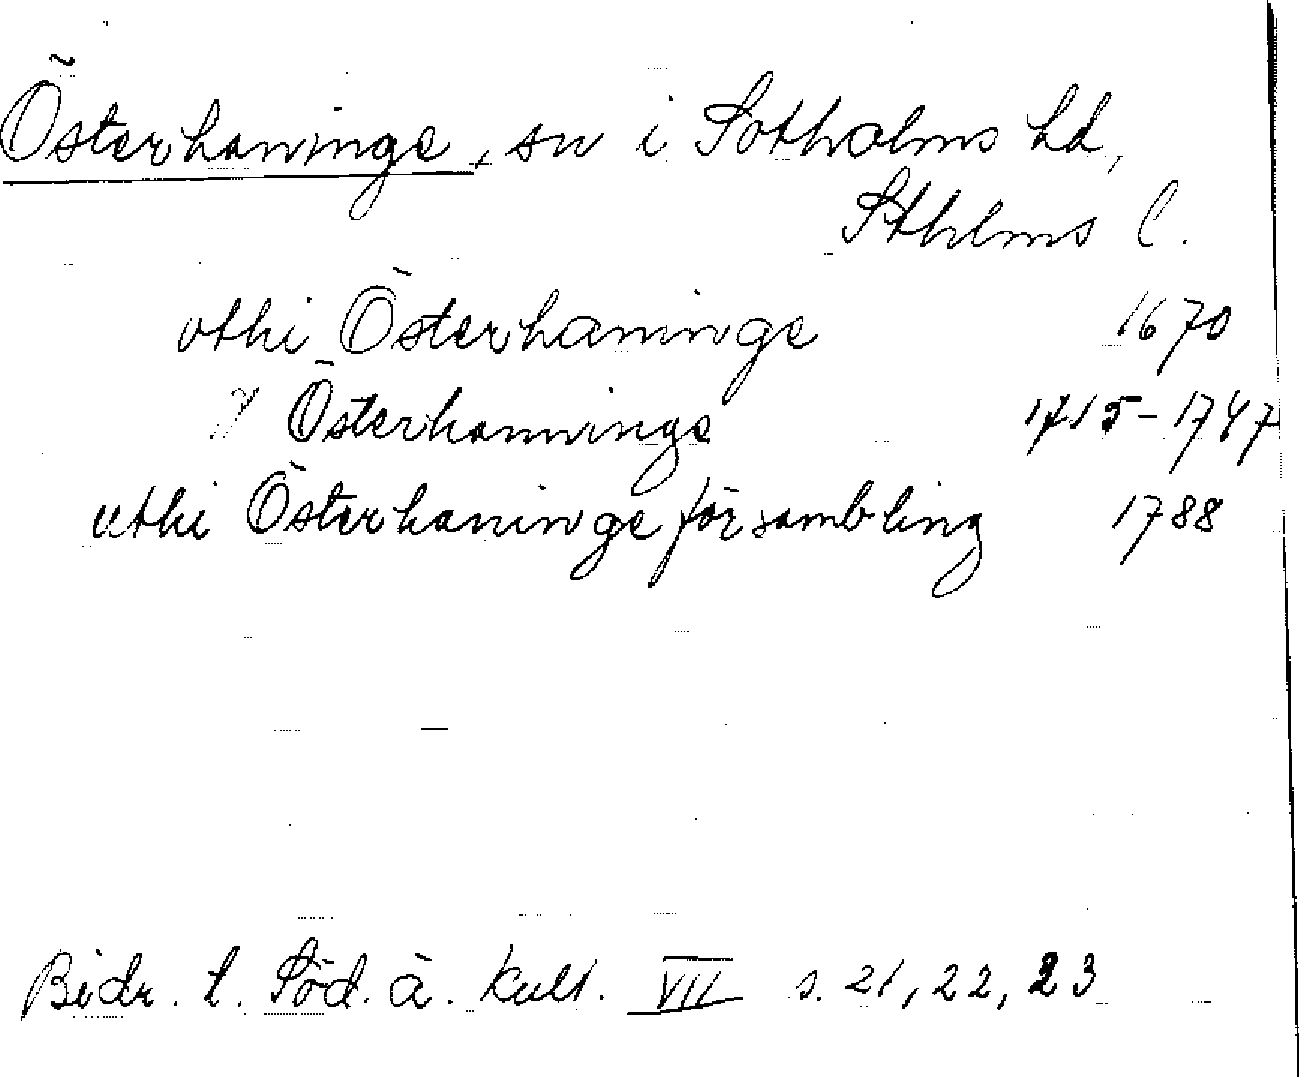 Österhaninge, sn i Sotholms hd,
Sthlms l.
vthi Österhaninge 1670
Y Österhanninge 1715-1747
uthi Österhaninge försambling 1788
Bidr. t. Söd. ä. kult. VII s. 21, 22, 23